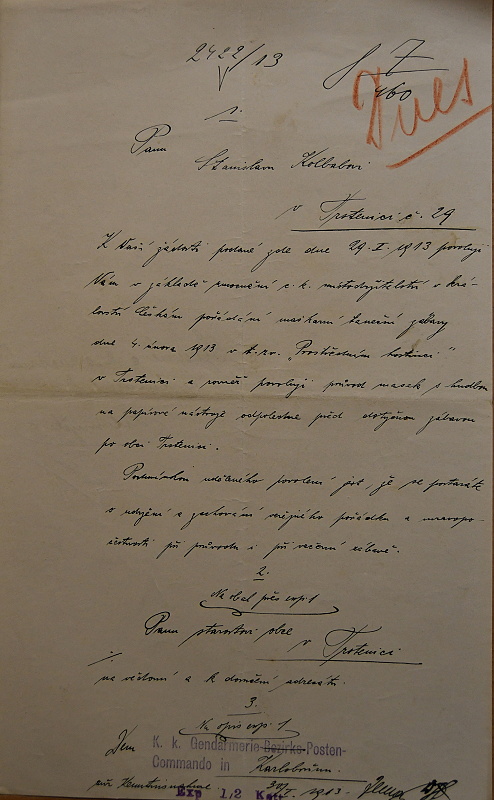 2422/13
7
460
Dnes
1.
Panu
Stanislavu Kolbabovi
v Trotenici č. 29
K Vaší žádosti podané zde dne 29. I. 1913 povoluji
Vám v základě zmocnění c. k. místodržitelství v krá-
lovství Českém pořádání maškarní taneční zábavy
dne 4. února 1913 v t. zv. „Prostředním hostinci"
v Trotenici a rovněž povoluji průvod masek s hudbou
na papírové nástroje odpoledne před dotyčnou zábavou
po obci Trotenici.
Podmínkou uděleného povolení jest, že se postaráte
o udržení a zachování veřejného pořádku a mravopo-
čestnosti při průvodu i při večerní zábavě.
2.
Na obal přes exp. 1
Panu starostovi obce
v Trotenici
na vědomí a k dodání adresátu.
3.
Na opis exp. 1
Dem K. k. Gendarmerie-Bezirks-Posten-
Commando in Karlsbrunn
zur Kenntnisnahme
Exp 1/2
1913